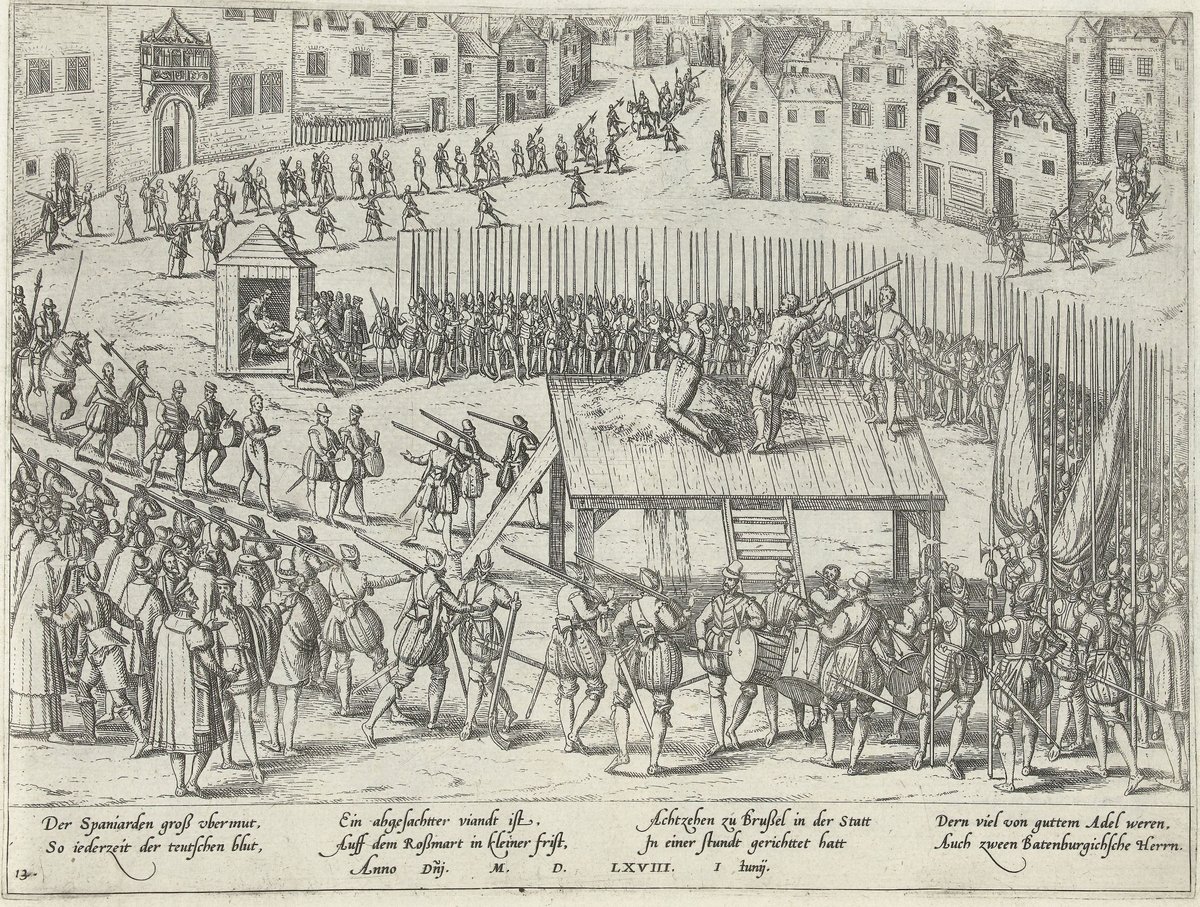 Der Spaniarden groß vbermut,
So iederzeit der teutschen blut,
Ein abgesachtter viandt ist,
Auff dem Roßmart in kleiner frist,
Achtzehen zu Brußel in der Statt
In einer stundt gerichttet hatt
Dern viel von guttem Adel weren,
Auch zween Batenburgichsche Herrn.
Anno Dñj. M. D. LXVIII. I Iunij.
13.